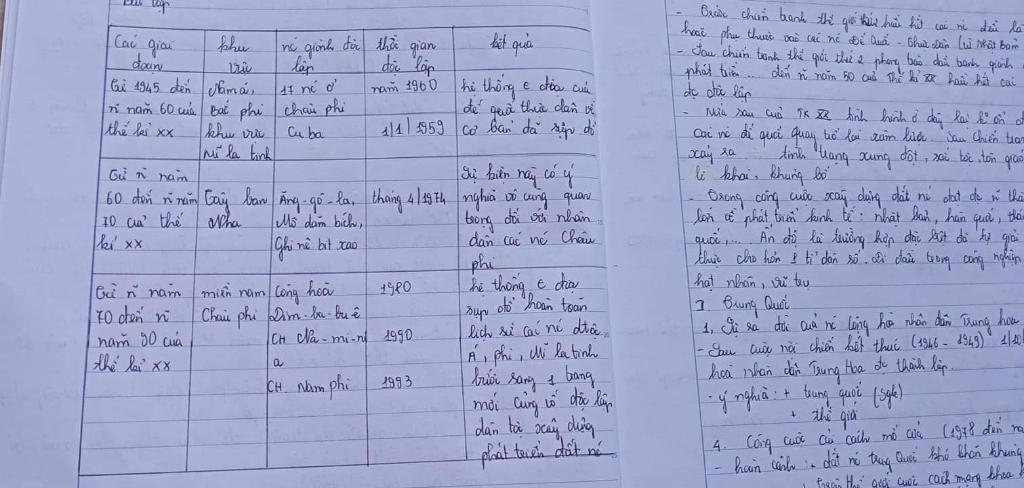 Bài tập
Các giai đoạn
khu vực
nc giành độc lập
thời gian độc lập
kết quả
Từ 1945 đến n năm 60 của thế kỉ xx
Nam á, Bắc phi
khu vực Mĩ la tinh
17 nc ở châu phi
Cu ba
năm 1960
1/1/1959
hệ thống t địa của đế quốc thực dân về cơ bản đã sụp đổ
Từ n năm 60 đến n năm 70 của thế kỉ xx
Tây ban Nha
Ăng-gô-la, Mô dăm bích, Ghi nê bít xao
tháng 4/1974
Sự kiện này có ý nghĩa vô cùng quan trọng đối với nhân dân các nc Châu phi
Từ n năm 70 đến n năm 90 của thế kỉ xx
miền nam Châu phi
Cộng hoà Dim-ba-bu-ê
CH Na-mi-ni a
CH. Nam phi
1980
1990
1993
hệ thống t địa sụp đổ hoàn toàn lịch sử các nc độc Á, phi, Mĩ la tinh bước sang 1 trang mới củng cố độc lập dân tộc xây dựng phát triển đất nc
- Trước chiến tranh thế giới thứ hai hầu hết các nc đều là
hoặc phụ thuộc vào các nc Đế Quốc - thực dân (trừ Nhật Bản
- Sau chiến tranh thế giới thứ 2 phong trào đấu tranh giành
phát triển ... đến n năm 50 của thế kỉ XX hầu hết các
đc độc lập
- Nửa sau của TK XX tình hình ở đây lại k ổn
Các nc đế quốc quay trở lại xâm lược sau chiến tran
xảy ra tình trạng xung đột, sắc tộc, tôn giáo
li khai, khủng bố
- Trong công cuộc xây dựng đất nc đạt đc n thà
lớn về phát triển kinh tế: nhật bản, hàn quốc,
quốc,... Ấn độ là trường hợp đặc biệt đã tự giải
thực cho hơn 1 tỉ dân số đi đầu trong công nghiệp
hạt nhân, vũ trụ
I. Trung Quốc
1, Sự ra đời của nc Cộng hoà nhân dân Trung hoa
- Sau cuộc nội chiến kết thúc (1946 - 1949) 1/10
hoà nhân dân Trung Hoa đc thành lập.
- ý nghĩa: + trung quốc (Sgk)
+ thế giới
4. Công cuộc cải cách mở cửa (1978 đến na
- hoàn cảnh: + đất nc trung Quốc khó khăn khủng
thế giới cuộc cách mạng khoa